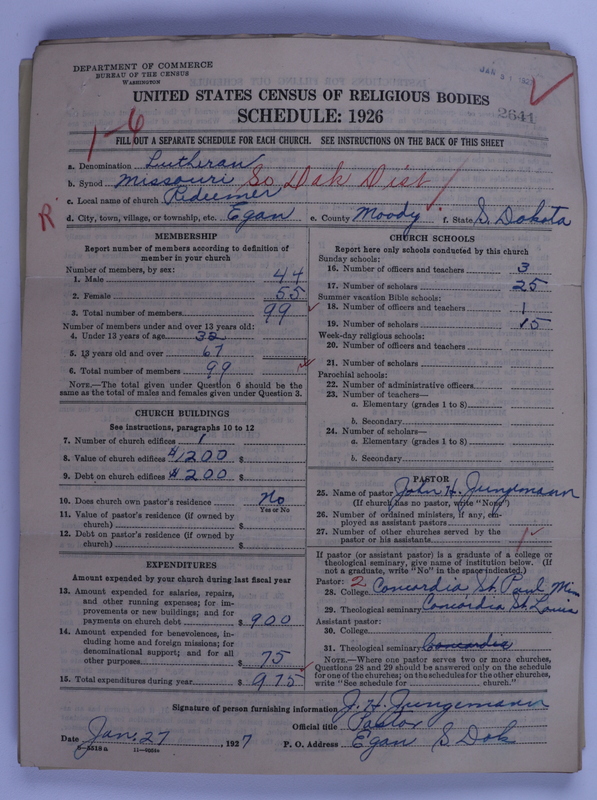 DEPARTMENT OF COMMERCE
BUREAU OF THE CENSUS
WASHINGTON
JAN 31 1927
UNITED STATES CENSUS OF RELIGIOUS BODIES
SCHEDULE: 1926
2641
1-6
FILL OUT A SEPARATE SCHEDULE FOR EACH CHURCH. SEE INSTRUCTIONS ON THE BACK OF THIS SHEET
a. Denomination Lutheran
b. Synod Missouri So Dak Dist
c. Local name of church Redeemer
R
d. City, town, village, or township, etc. Egan e. County Moody f. State S. Dakota
MEMBERSHIP
Report number of members according to definition of
member in your church
Number of members, by sex:
1. Male 44
2. Female 55
3. Total number of members 99
Number of members under and over 13 years old:
4. Under 13 years of age 32
5. 13 years old and over 67
6. Total number of members 99
NOTE.—The total given under Question 6 should be the
same as the total of males and females given under Question 3.
CHURCH BUILDINGS
See instructions, paragraphs 10 to 12
7. Number of church edifices 1
8. Value of church edifices 1200 $
9. Debt on church edifices 200 $
10. Does church own pastor's residence No
Yes or No
11. Value of pastor's residence (if owned by
church) $
12. Debt on pastor's residence (if owned by
church) $
EXPENDITURES
Amount expended by your church during last fiscal year
13. Amount expended for salaries, repairs,
and other running expenses; for im-
provements or new buildings; and for
payments on church debt $ 900
14. Amount expended for benevolences, in-
cluding home and foreign missions; for
denominational support; and for all
other purposes $ 75
15. Total expenditures during year $ 975
CHURCH SCHOOLS
Report here only schools conducted by this church
Sunday schools:
16. Number of officers and teachers 3
17. Number of scholars 25
Summer vacation Bible schools:
18. Number of officers and teachers 1
19. Number of scholars 15
Week-day religious schools:
20. Number of officers and teachers
21. Number of scholars
Parochial schools:
22. Number of administrative officers
23. Number of teachers—
a. Elementary (grades 1 to 8)
b. Secondary
24. Number of scholars—
a. Elementary (grades 1 to 8)
b. Secondary
PASTOR
25. Name of pastor John H. Jungemann
(If church has no pastor, write "None")
26. Number of ordained ministers, if any, em-
ployed as assistant pastors
27. Number of other churches served by the
pastor or his assistants
If pastor (or assistant pastor) is a graduate of a college or
theological seminary, give name of institution below. (If
not a graduate, write "No" in the space indicated.)
Pastor: 2
28. College Concordia St. Paul Minn
29. Theological seminary Concordia St. Louis
Assistant pastor:
30. College
31. Theological seminary Concordia
NOTE.—Where one pastor serves two or more churches,
Questions 28 and 29 should be answered only on the schedule
for one of the churches; on the schedules for the other churches,
write "See schedule for church."
Signature of person furnishing information J. H. Jungemann
Official title Pastor
Date Jan. 27, 1927 P. O. Address Egan S Dak
8-5518a 11-9051